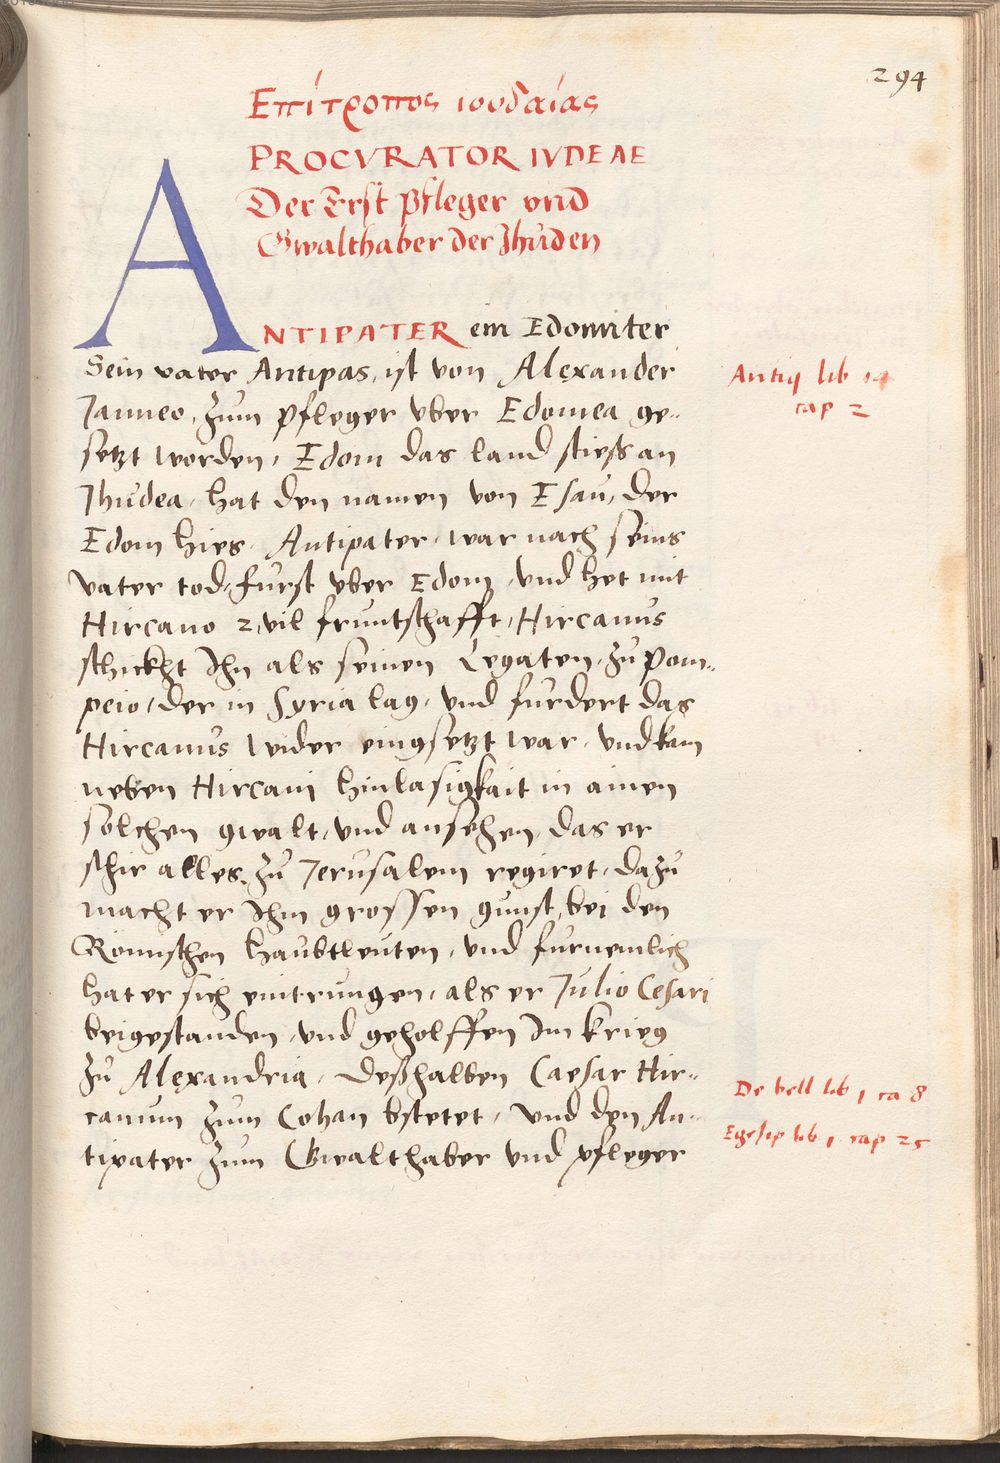 294
Επίτροπος ιουδαίας
PROCVRATOR IVDEAE
Der Erst pfleger vnd
Gwalthaber der Jhuden
ANTIPATER ein Edomiter
Sein vater Antipas, ist von Alexander
Janneo, zum pfleger vber Edomea ge-
setzt worden, Edom das land stiess an
Jhudea, hat den namen von Esau, der
Edom hies. Antipater, war nach seins
vater tod, furst vber Edom, vnd het mit
Hircano 2, vil fruntschafft, Hircanus
schickht Jhn als seinen Legaten, zu Pom-
peio, der in Syria lag, vnd furdert das
Hircanus wider eingsetzt war, vnd kam
neben Hircani hinlasigkait in ainen
solchen gwalt, vnd ansehen, das er
schir alles, zu Jerusalem regiret, dazu
macht er Jhm grossen gunst, bei den
Römischen haubtleuten, vnd furnemlich
hat er sich eintrungen, als er Julio Cesari
beigestanden, vnd geholffen Jm krieg
zu Alexandria, deßhalben Caesar Hir-
canum zum Cohan bstetet, vnd den An-
tipater zum Gwalthaber vnd pfleger
Antiq lib 14
cap 2
De bell lib 1 ca 8
Egesip lib 1 cap 25